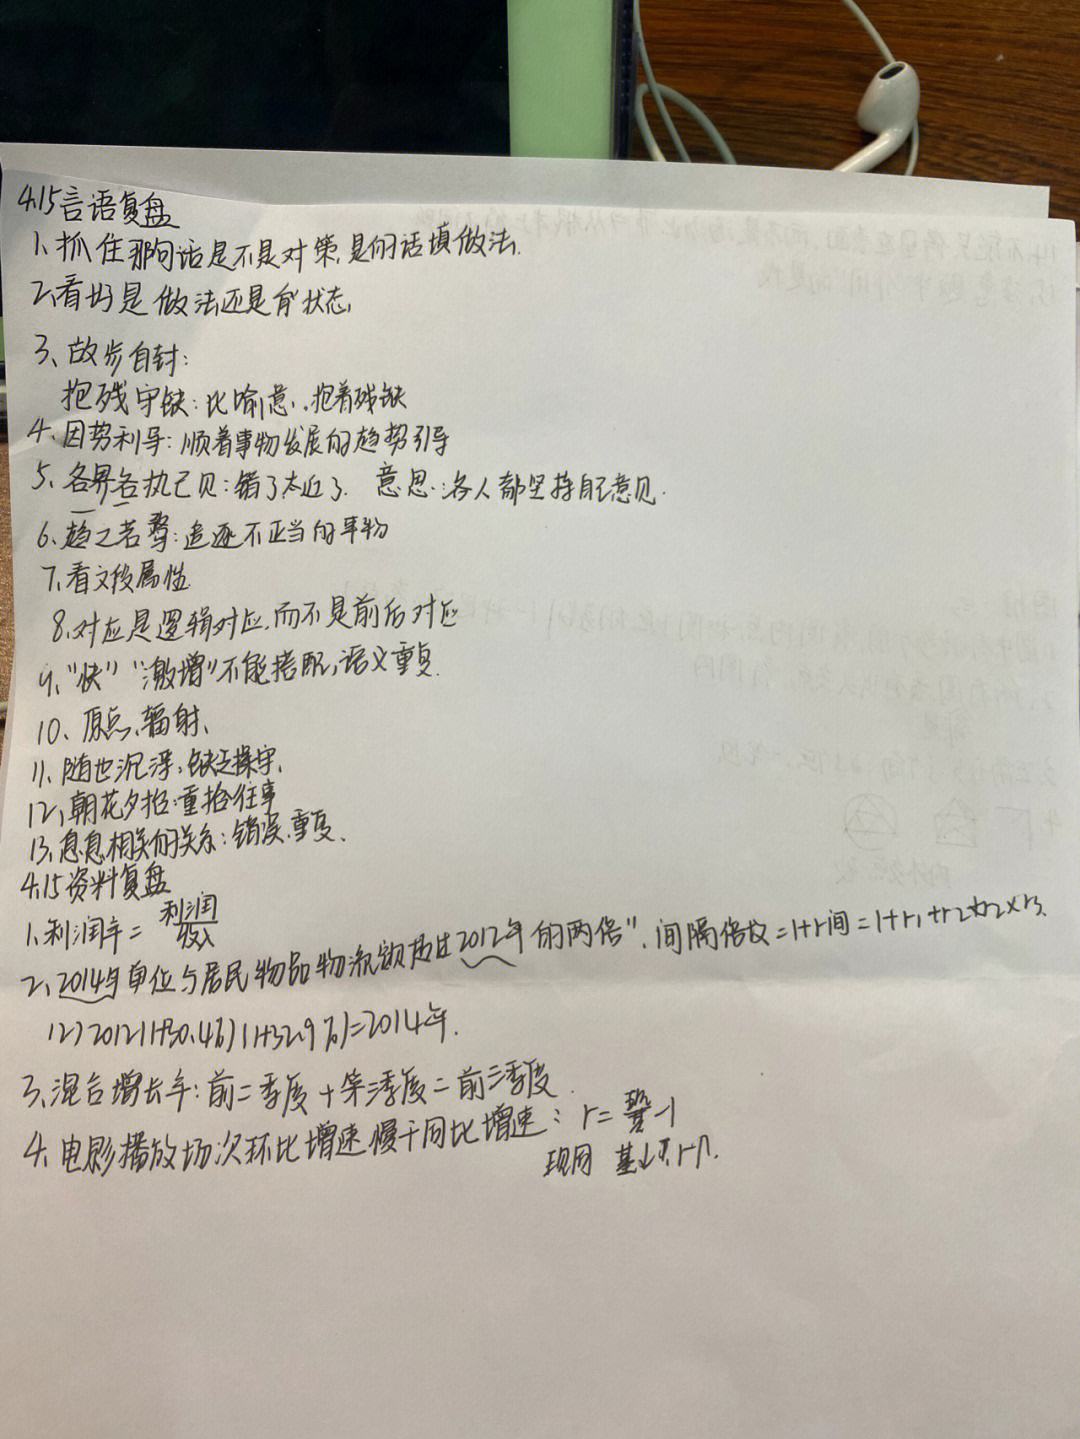 4.15言语复盘
1、抓住那句话是不是对策,是的话填做法.
2、看好是做法还是有状态,
3、故步自封:
抱残守缺:比喻意、抱着残缺
4、因势利导:顺着事物发展的趋势引导
5、各界各执己见:错了太近了. 意思:各人都坚持自己意见.
6、趋之若鹜:追逐不正当的事物
7、看文段属性
8、对应是逻辑对应,而不是前后对应
9、"快""激增"不能搭配,语义重复.
10、原点、辐射、
11、随世沉浮:缺乏操守.
12、朝花夕拾:重拾往事
13、息息相关的关系:错误.重复.
4.15资料复盘
1、利润率=利润/收入
2、2014年单位与居民物品物流额超过2012年的两倍",间隔倍数=1+r间=1+r₁+r₂+r₁×r₂
(2)2012(1+30.4%)(1+32.9%)=2014年.
3、混合增长率:前二季度+第三季度=前三季度.
4、电影播放场次环比增速慢于同比增速: r=现/基-1
现同 基小,r大.